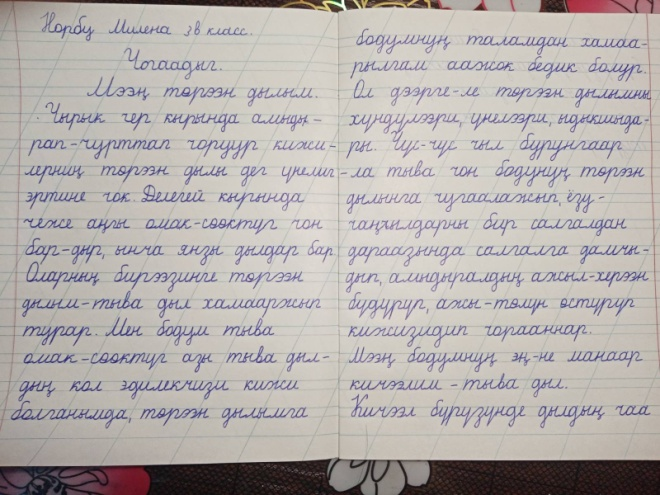 Норбу Милена 3в класс.
Чогаадыг.
Мээң төрээн дылым.
Чырык чер кырында амыды-
рап-чурттап чоруур кижи-
лерниң төрээн дылы дег үнелиг
эртине чок. Делегей кырында
чеже аңгы омак-сөөктүг чон
бар-дыр, ынча янзы дылдар бар.
Оларның бирээзинге төрээн
дылым-тыва дыл хамааржып
турар. Мен бодум тыва
омак-сөөктүг азы тыва дыл-
дың кол эдилекчизи кижи
болганымда, төрээн дылымга
бодумнуң таламдан хамаа-
рылгам аажок бедик болур.
Ол дээрге-ле төрээн дылымны
хүндүлээри, үнелээри, ыдыкшыда-
ры. Чүс-чүс чыл бурунгаар
-ла тыва чон бодунуң төрээн
дылынга чугаалажып, ёзу-
чаңчылдарны бир салгалдан
дараазында салгалга дамчы-
дып, амыдыралдың ажыл-херээн
бүдүрүп, ажы-төлүн өстүрүп
кижизидип чорааннар.
Мээң бодумнуң эң-не манаар
кичээлим - тыва дыл.
Кичээл бүрүзүнде дылдың чаа